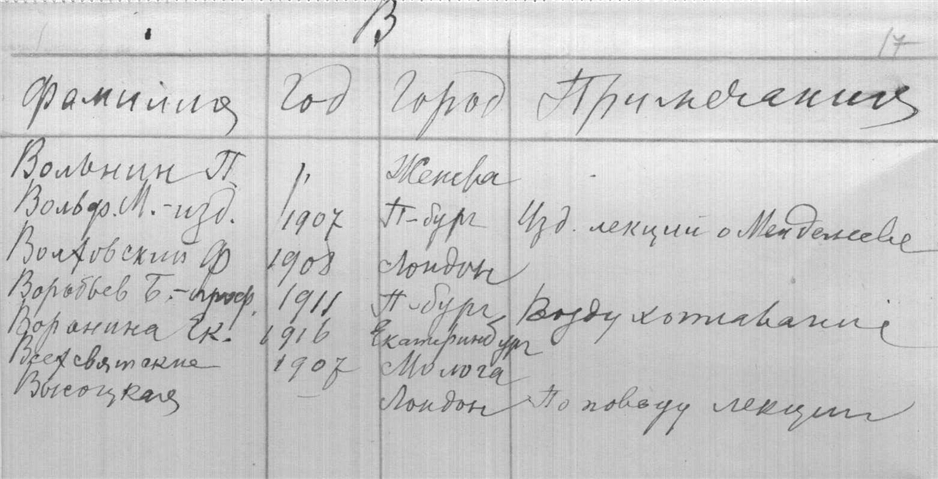 В
17
Фамилия Год Город Примечания
Вольнин П " Женева
Вольф. М.-изд. 1907 П-бург Изд. лекций о Менделееве
Волховский Ф 1908 Лондон
Воробьев Б.-проф. 1911 П-бург Воздухоплавание
Воронина Ек. 1916 Екатеринбург
Всехсвятские 1907 Молога
Высоцкая Лондон По поводу лекции